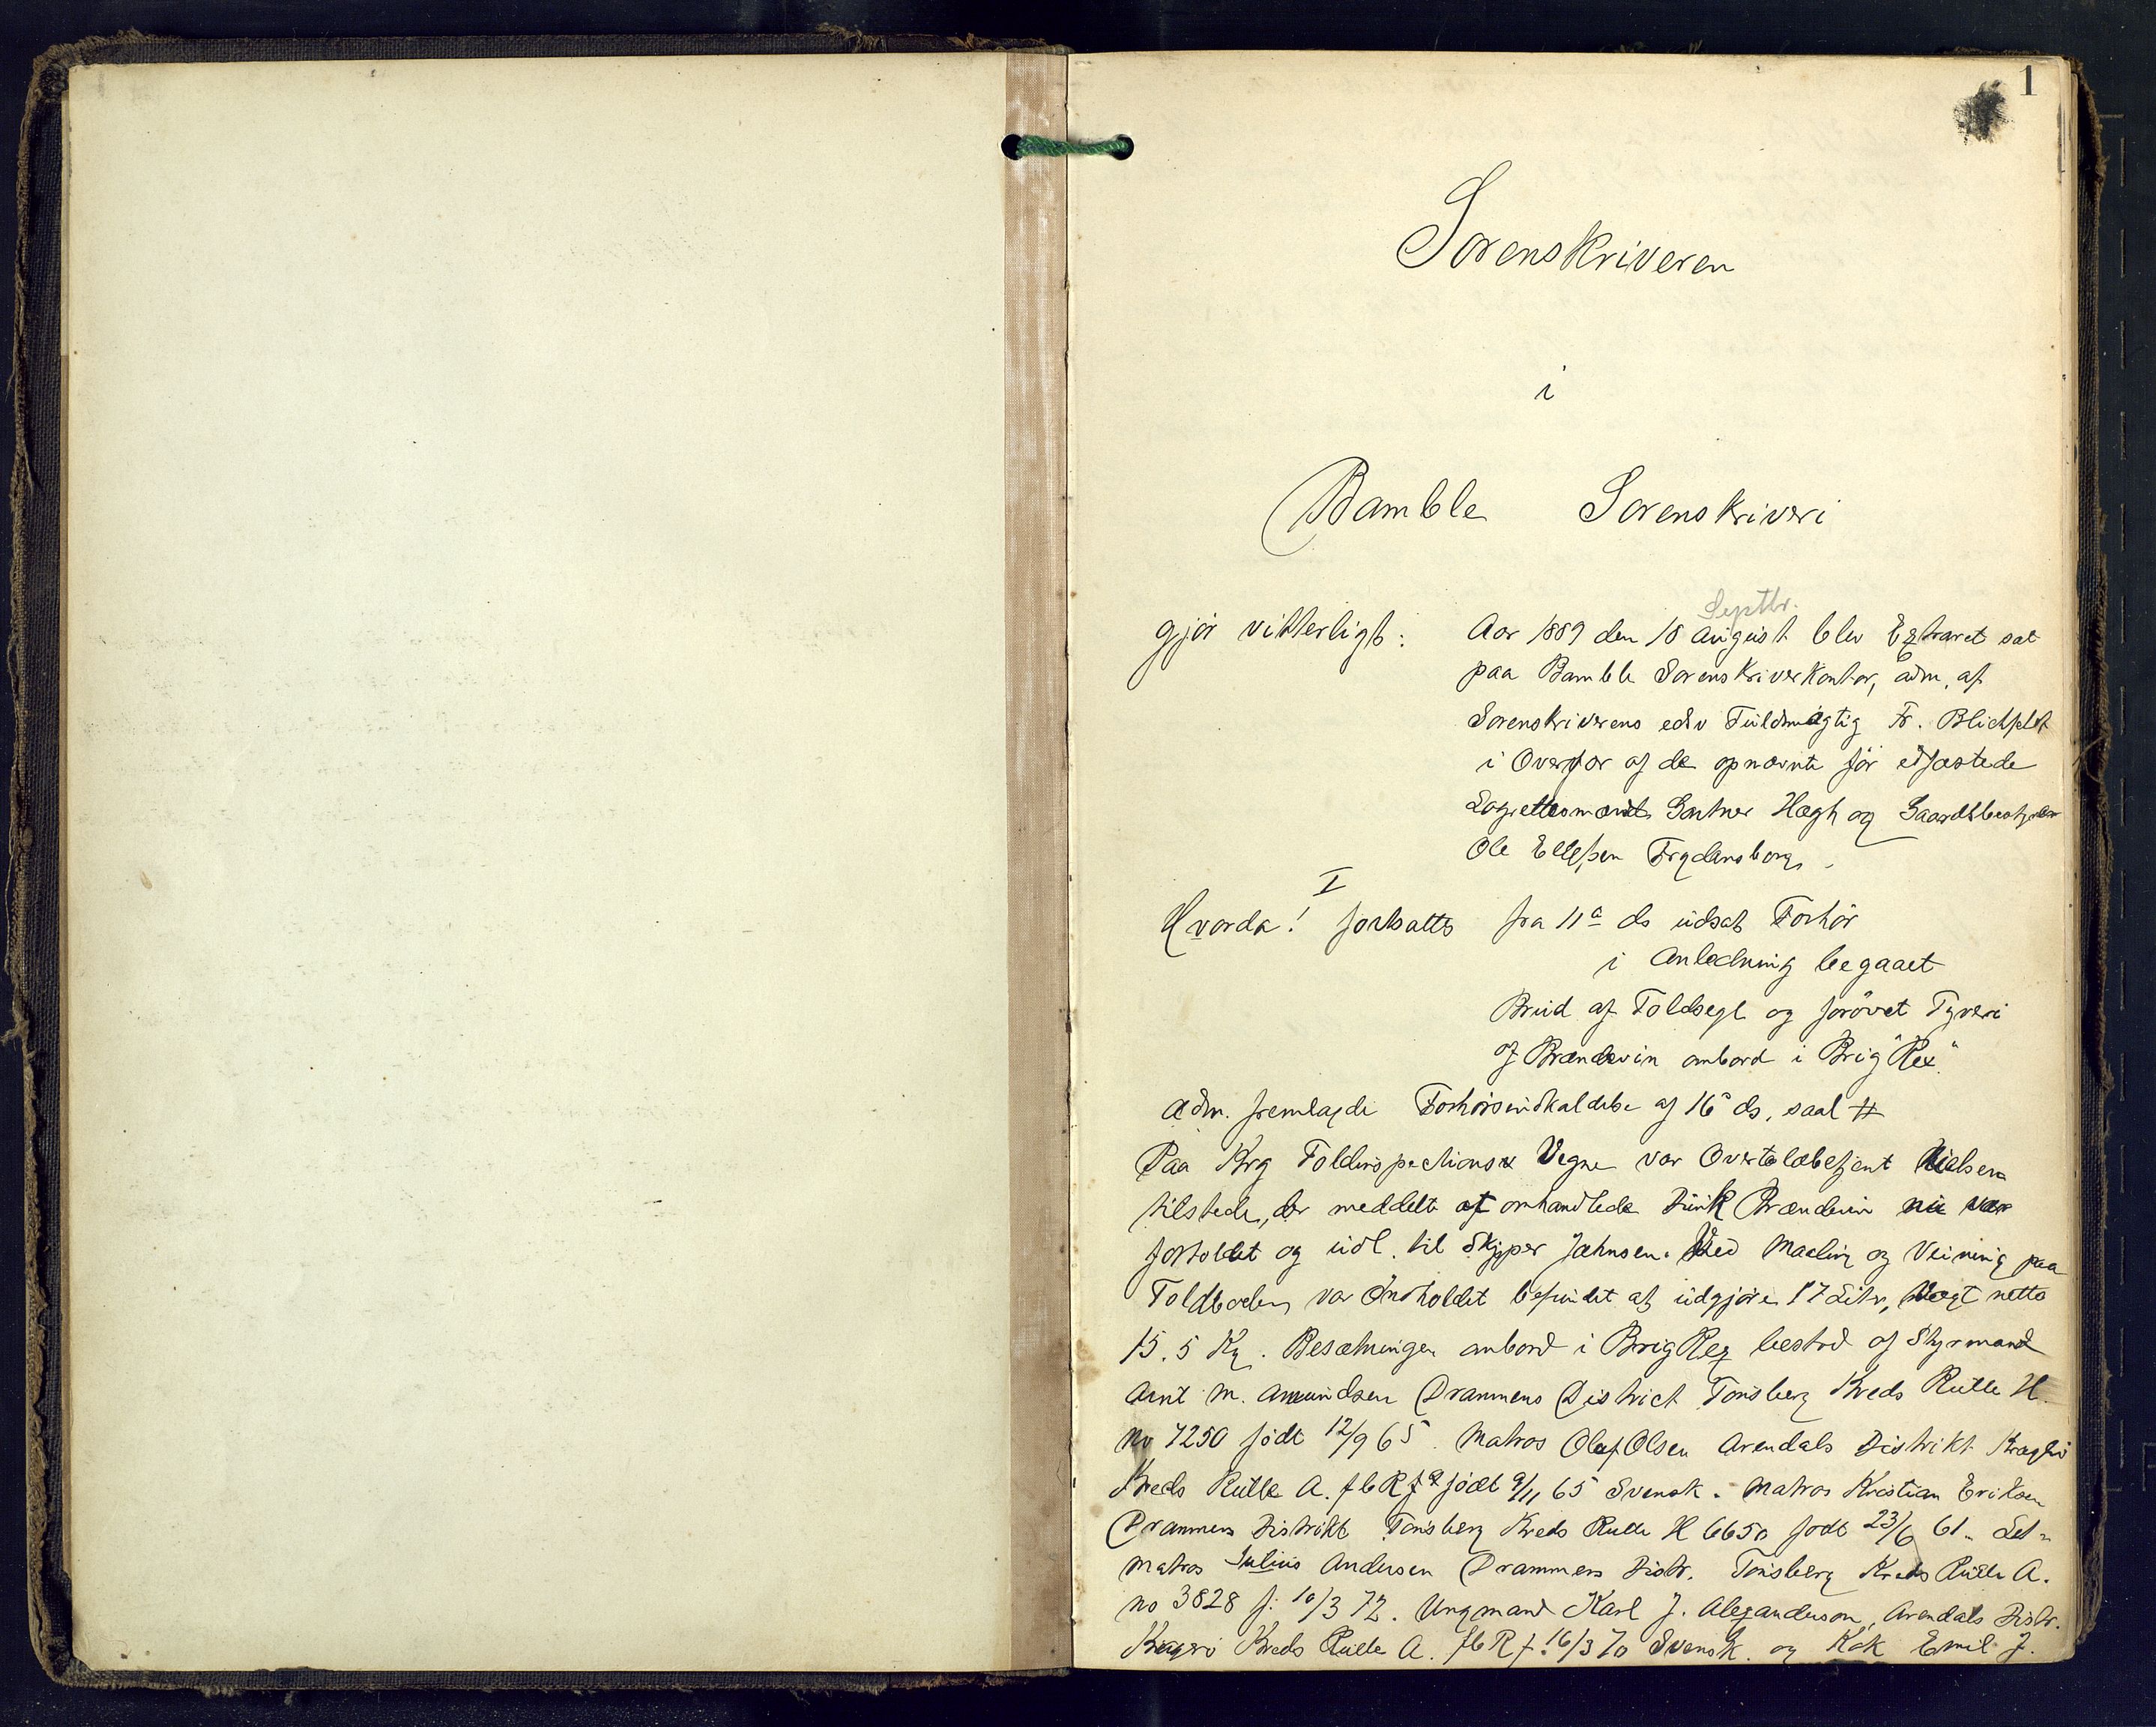 1
Sorenskriveren
i
Bamble Sorenskriveri
Septbr.
gjör vitterligt: Aar 1889 den 18 August blev Extraret sat
paa Bamble Sorenskriverkontor, adm. af
Sorenskriverens edsv Fuldmægtig Fr. Blichfeldt
i Overvær af de opnævnte før edfæstede
Lagrettesmænd Gartner Høgh og Gaardsbestyrer
Ole Ellefsen Frydensborg.
I
Hvorda! fortsattes fra 11a ds udsat Forhör
i Anledning begaaet
Brud af Toldsegl og forövet Tyveri
af Brændevin ombord i Brig "Rex".
Adm. fremlagde Forhörsindkaldelse af 16 ds, saal #
Paa Krg Toldinspections Vegne var Overtoldbetjent Nielsen
tilstede, der meddelte at omhandlede Dunk Brændevin nu var
fortoldet og udl. til Skipper Jahnsen. Ved Maaling og Veining paa
Toldboden var Indholdet befundet at udgjöre 17 Liter, Vægt netto
15.5 Kg. Besætningen ombord i Brig Rex bestod af Styrmand
Arnt M. Amundsen Drammens District Tönsberg Kreds Rulle H.
No 7250 födt 12/9 65. Matros Olaf Olsen Arendals Distrikt Kragerö
Kreds Rulle A. fbR födt 9/11 65 Svensk. Matros Kristian Eriksen
Drammens Distrikt Tönsberg Kreds Rulle H 6650 födt 23/6 61. Let-
matros Julius Andersen Drammens Distr. Tönsberg Kreds Rulle A.
no 3828 f: 10/3 72. Ungmand Karl J. Alexanderson, Arendals Distr.
Kragerö Kreds Rulle A. fbR f. 16/3 70 Svensk. og Kok Emil J.